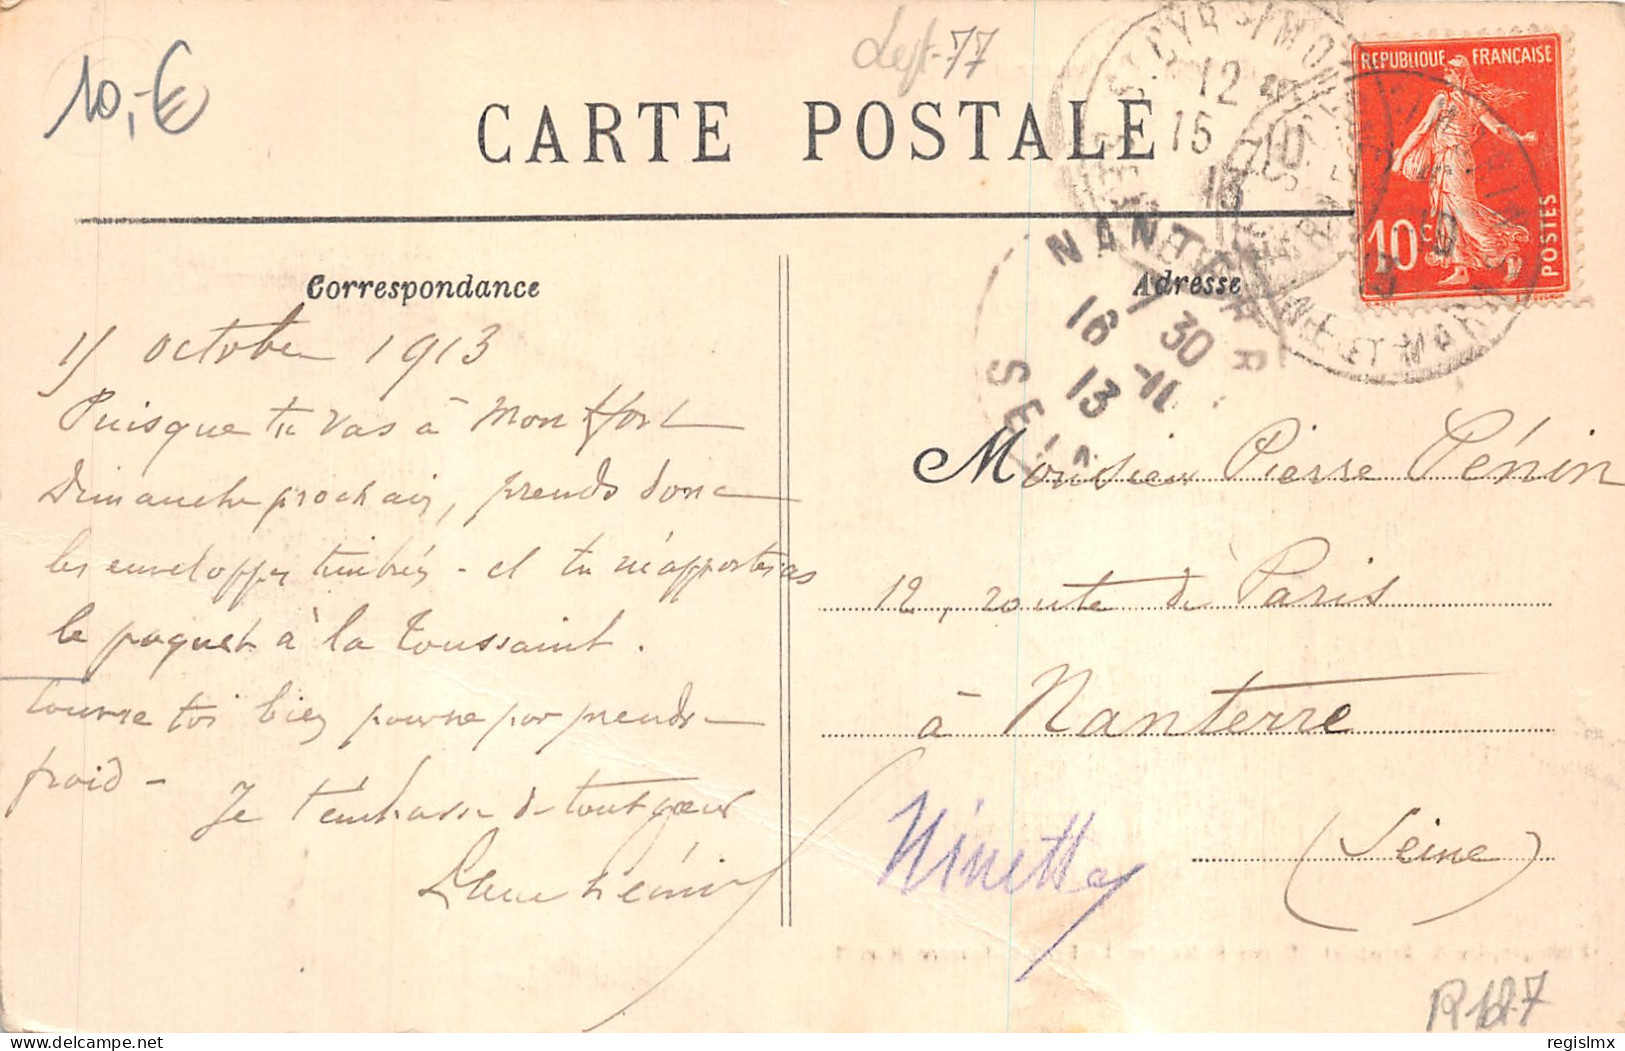 10,-€
Dept-77
CARTE POSTALE
REPUBLIQUE FRANÇAISE
10 c
POSTES
ST CYR S/MORIN
12
15 -10
13
SEINE ET MARNE
NANTERRE
1 30
16 -11
13
SEINE
Correspondance
Adresse
15 octobre 1913
Puisque tu vas à Montfort
Dimanche prochain, prends donc
les enveloppes timbrées - et tu m'apporteras
le paquet à la Toussaint.
Couvre toi bien pour ne pas prendre
froid - Je t'embrasse de tout cœur
Pénin
Monsieur Pierre Pénin
12, route de Paris
à Nanterre
(Seine)
Ninette
R 127
regislmx